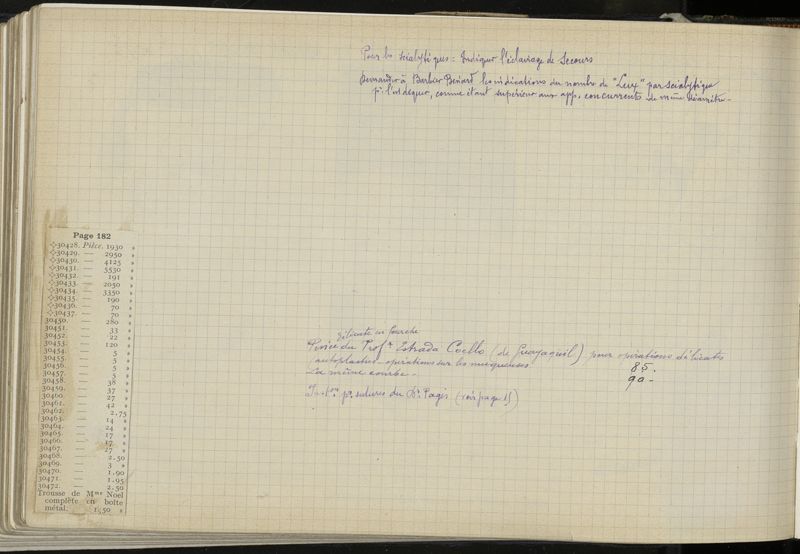 Pour les scialytiques : Indiquer l'éclairage de Secours
Demander à Barbier Bénard les indications du nombre de "Lux" par scialytique
p. l'indiquer, comme étant supérieur aux app. concurrents de même diamètre.
Page 182
30428. Pièce. 1930 »
30429. — 2950 »
30430. — 4125 »
30431. — 5530 »
30432. — 191 »
30433. — 2050 »
30434. — 3350 »
30435. — 190 »
30436. — 70 »
30437. — 70 »
30450. — 280 »
30451. — 33 »
30452. — 22 »
30453. — 120 »
30454. — 5 »
30455. — 5 »
30456. — 5 »
30457. — 5 »
30458. — 38 »
30459. — 37 »
30460. — 27 »
30461. — 42 »
30462. — 2,75
30463. — 14 »
30464. — 24 »
30465. — 17 »
30466. — 17 »
30467. — 27 »
30468. — 2.50
30469. — 3 »
30470. — 1,90
30471. — 1.95
30472. — 2.50
Trousse de Mme Noel
complète en boîte
métal.
délicate en fourche
Pince du Profr Estrada Coello (de Guayaquil) pour opérations délicates
(autoplasties, opérations sur les muqueuses. 85.
La même courbe. 90 -
p. sutures du Dr Pagis (voir page